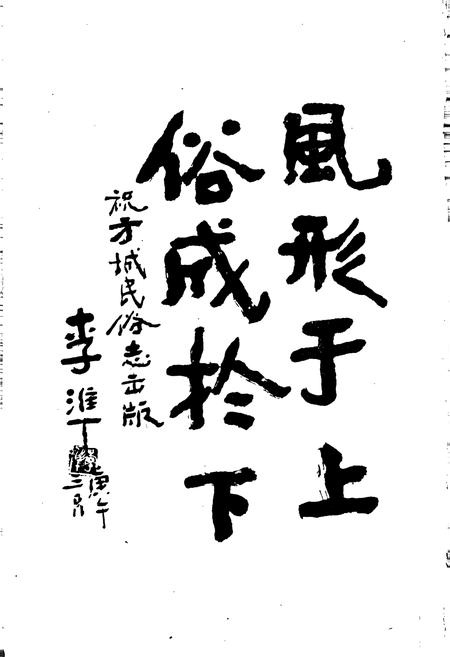 風形于上
俗成於下
祝方城民俗志出版
李準
庚午
三月